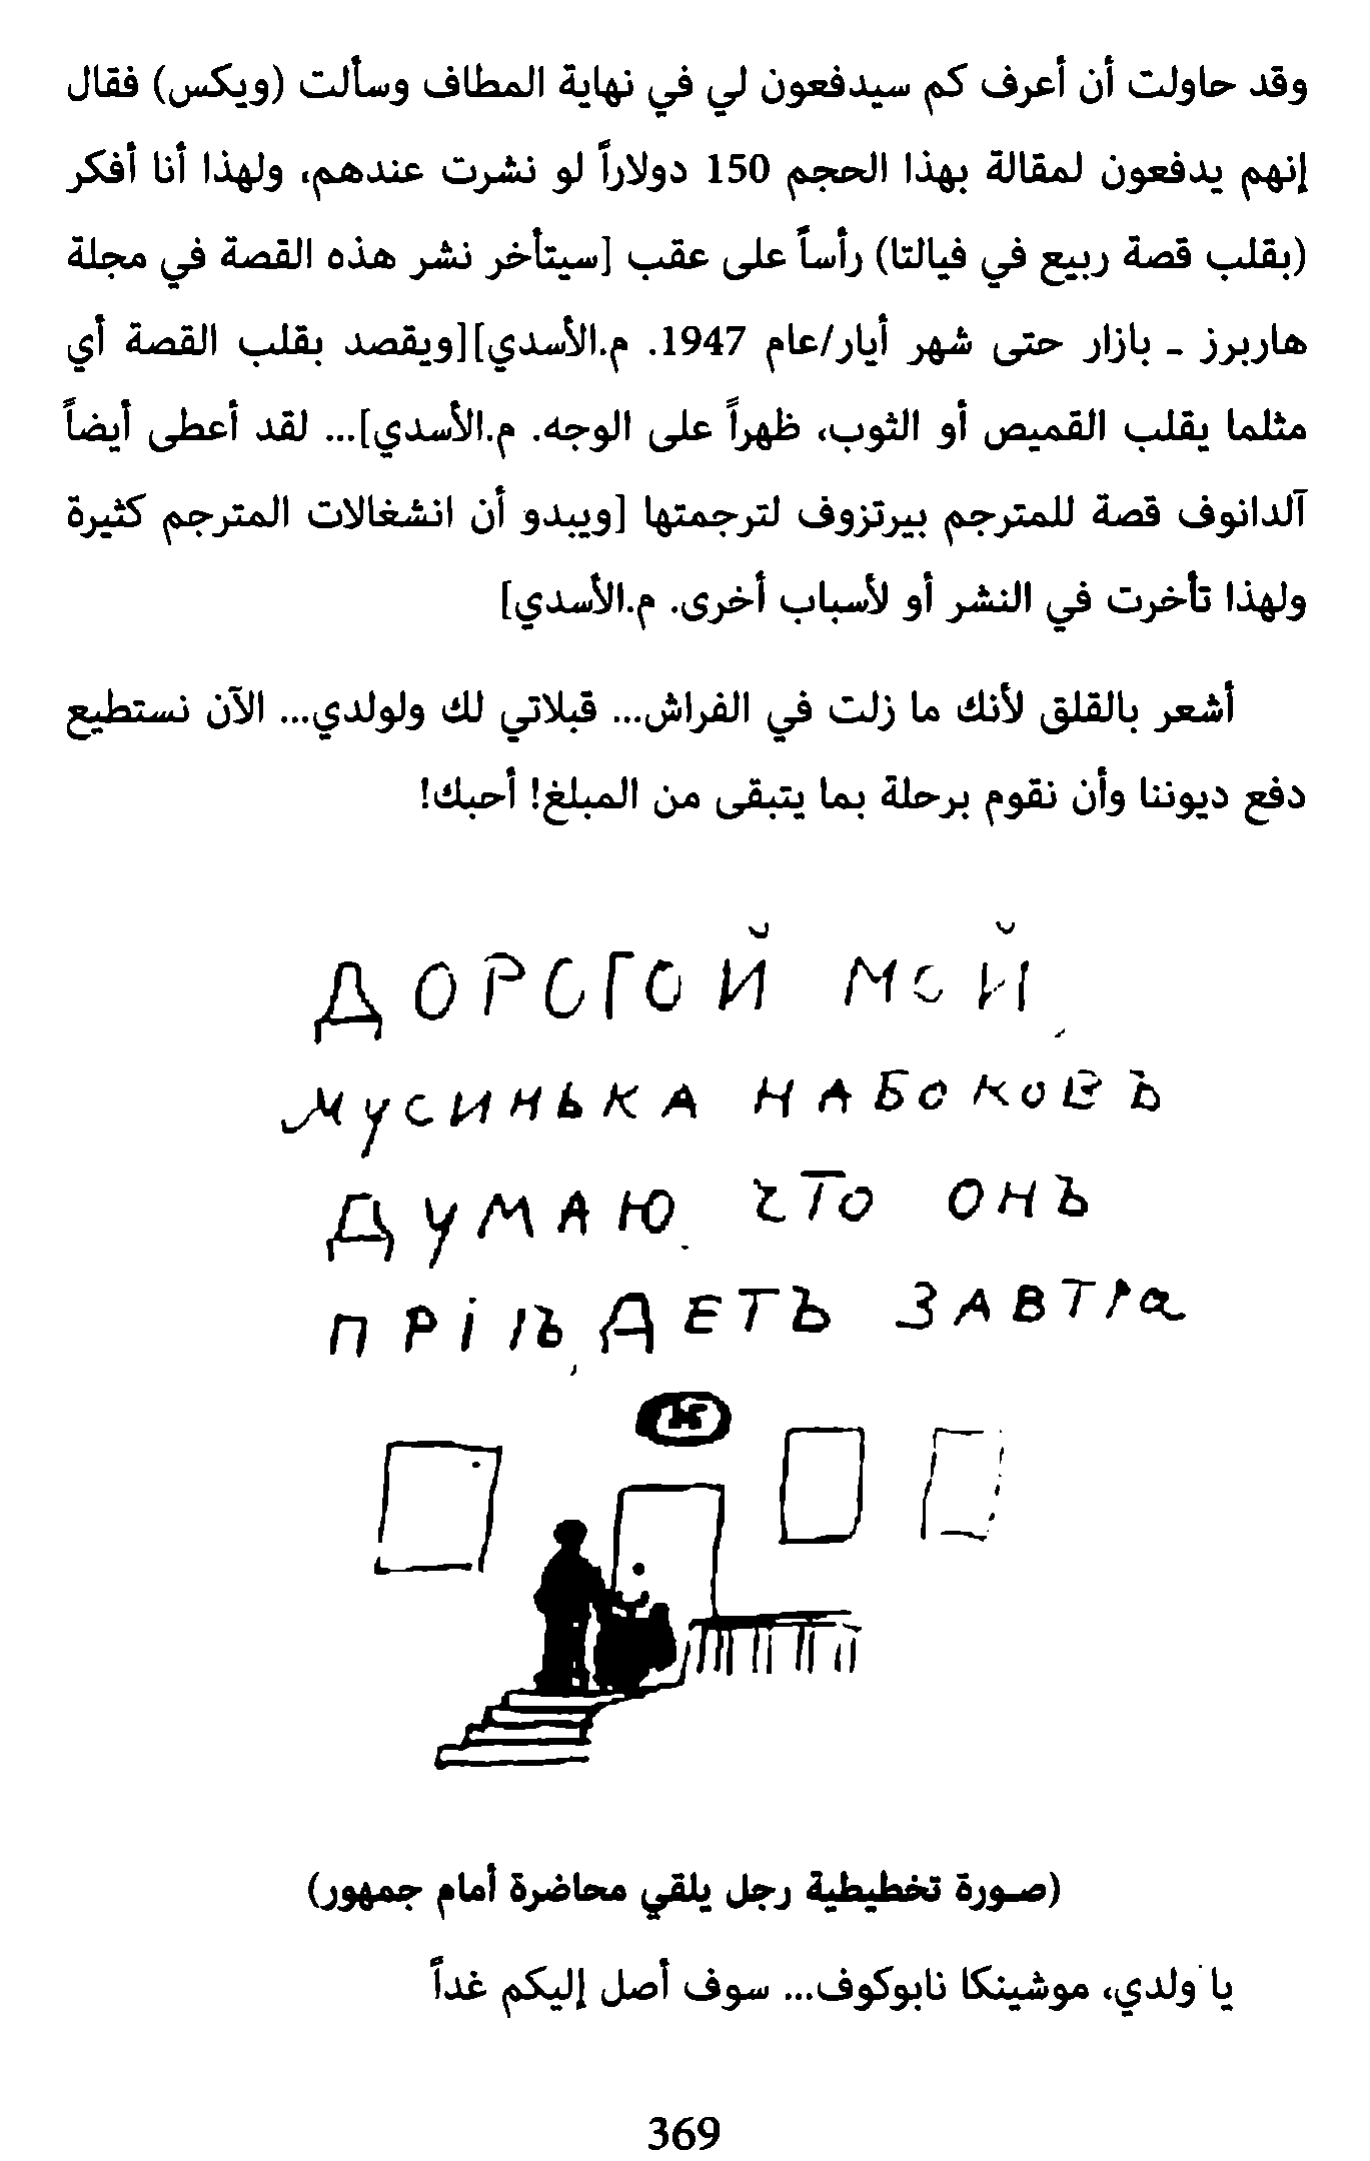 وقد حاولت أن أعرف كم سيدفعون لي في نهاية المطاف وسألت (ويكس) فقال
إنهم يدفعون لمقالة بهذا الحجم 150 دولاراً لو نشرت عندهم، ولهذا أنا أفكر
(بقلب قصة ربيع في فيالتا) رأساً على عقب [سيتأخر نشر هذه القصة في مجلة
هاربرز ـ بازار حتى شهر أيار/عام 1947. م.الأسدي][ويقصد بقلب القصة أي
مثلما يقلب القميص أو الثوب، ظهراً على الوجه. م.الأسدي]... لقد أعطى أيضاً
آلدانوف قصة للمترجم بيرتزوف لترجمتها [ويبدو أن انشغالات المترجم كثيرة
ولهذا تأخرت في النشر أو لأسباب أخرى. م.الأسدي]
أشعر بالقلق لأنك ما زلت في الفراش... قبلاتي لك ولولدي... الآن نستطيع
دفع ديوننا وأن نقوم برحلة بما يتبقى من المبلغ! أحبك!
ДОРОГОЙ МОЙ
МУСИНЬКА НАБОКОВЪ
ДУМАЮ ЧТО ОНЪ
ПРІѢДЕТЪ ЗАВТРА
(صورة تخطيطية رجل يلقي محاضرة أمام جمهور)
يا ولدي، موشينكا نابوكوف... سوف أصل إليكم غداً
369